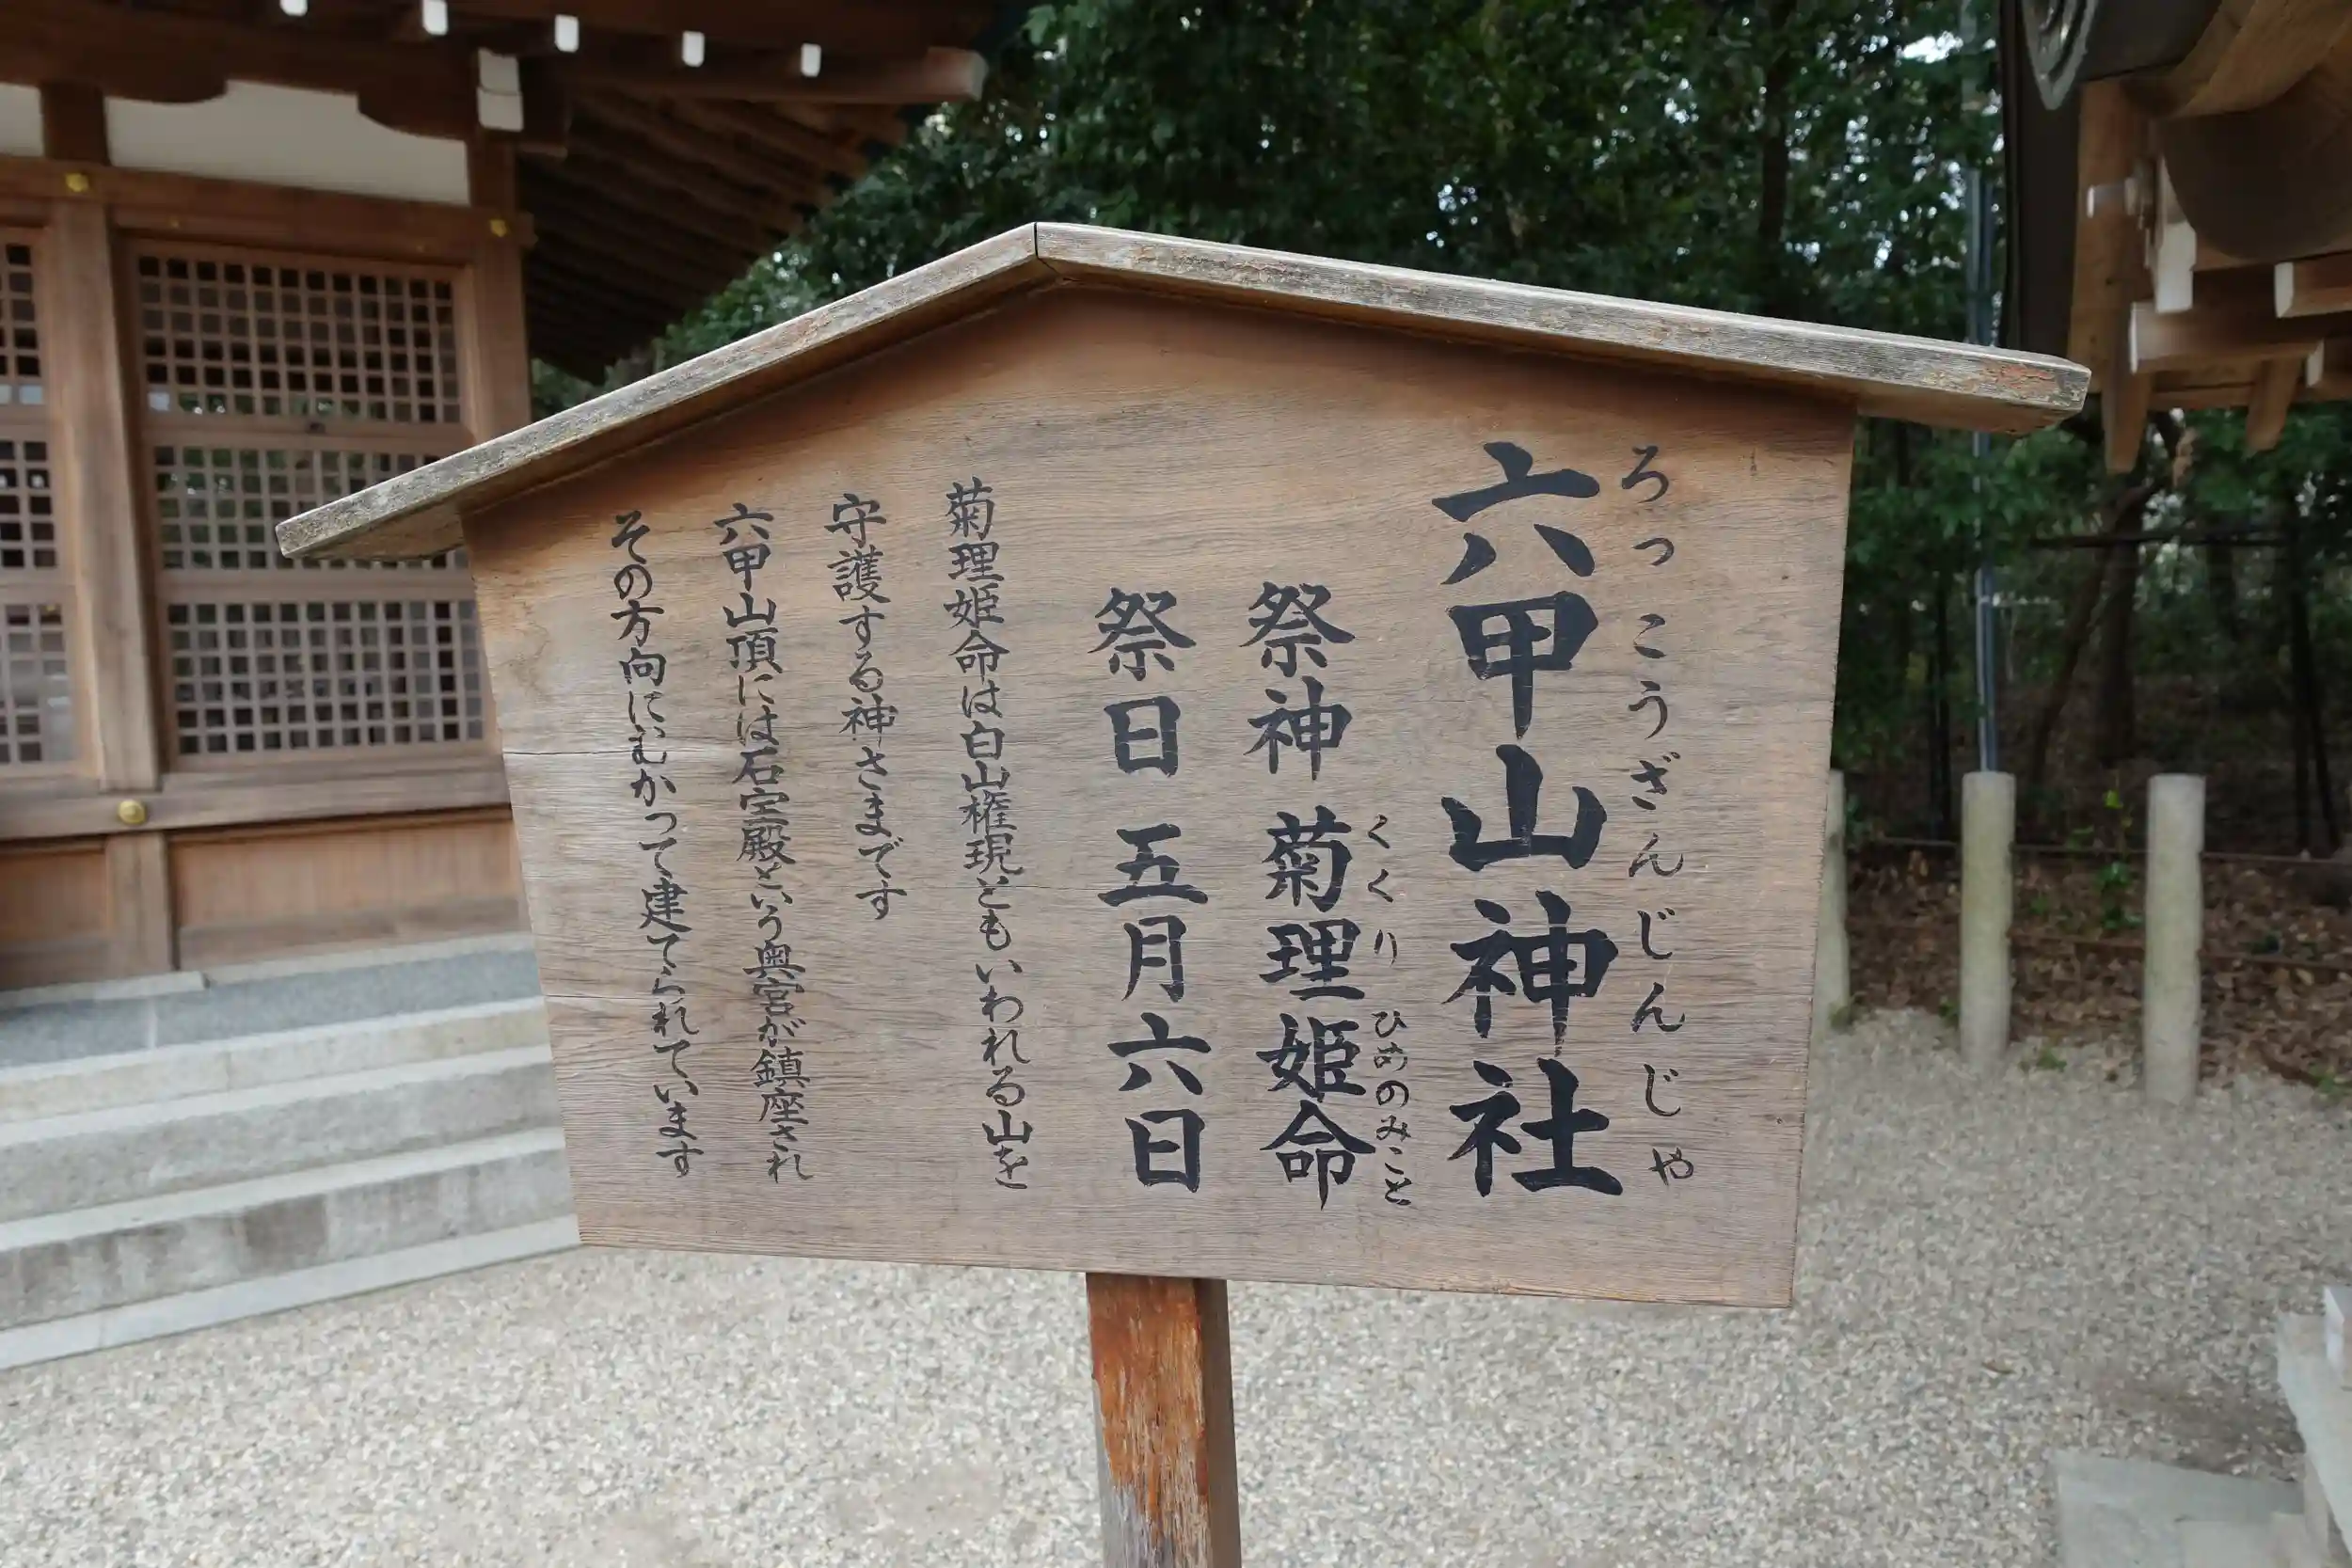 ろっこうざんじんじゃ
六甲山神社
くくりひめのみこと
祭神 菊理姫命
祭日 五月六日
菊理姫命は白山権現ともいわれる山を
守護する神さまです
六甲山頂には石宝殿という奥宮が鎮座され
その方向にむかって建てられています